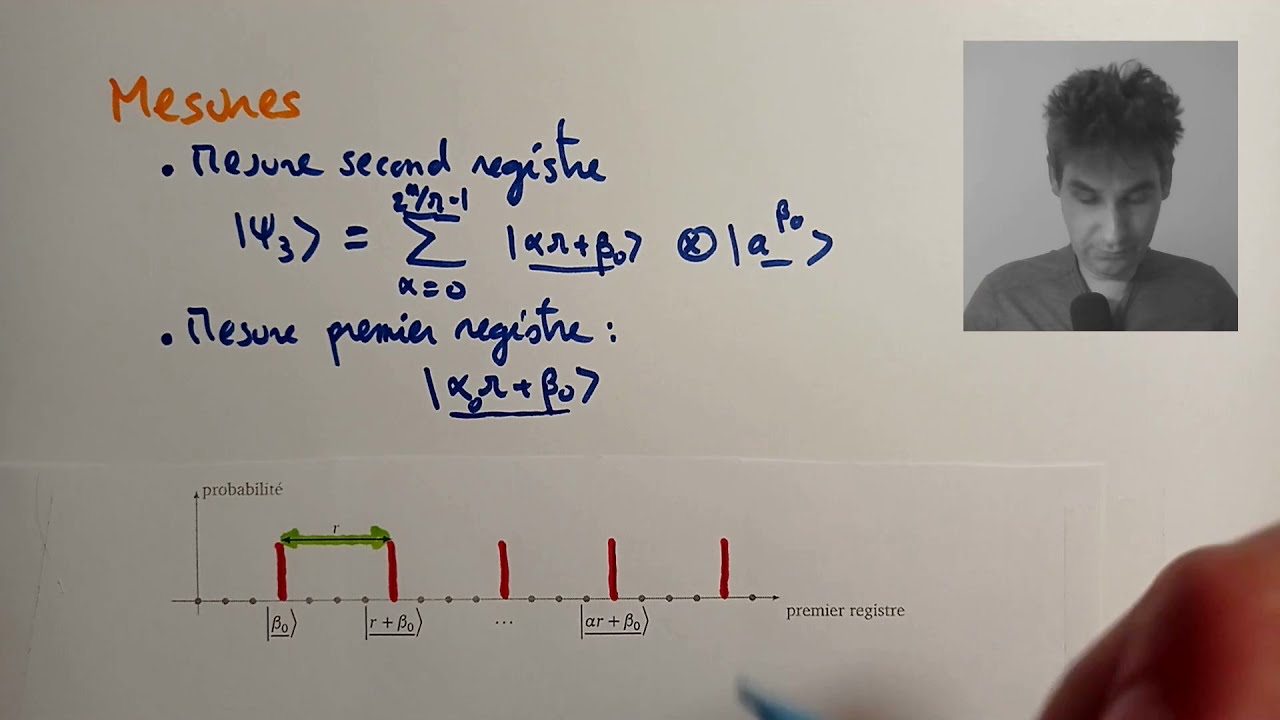 Mesures
• Mesure second registre
|ψ₃⟩ = ∑_{α=0}^{2ⁿ/r-1} |αr+β₀⟩ ⊗ |a^{β₀}⟩
• Mesure premier registre :
|α₀r+β₀⟩
probabilité
r
|β₀⟩ |r + β₀⟩ ... |αr + β₀⟩
premier registre